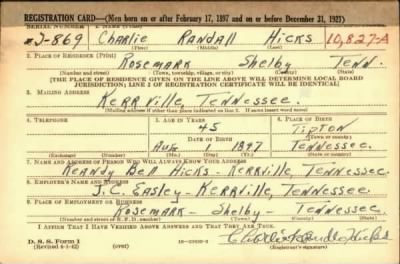 REGISTRATION CARD—(Men born on or after February 17, 1897 and on or before December 31, 1921)
SERIAL NUMBER 1. NAME (Print)
J-869 Charlie Randall Hicks 10,827-A
(First) (Middle) (Last)
2. PLACE OF RESIDENCE (Print)
Rosemark Shelby Tenn.
(Number and street) (Town, township, village, or city) (County) (State)
[THE PLACE OF RESIDENCE GIVEN ON THE LINE ABOVE WILL DETERMINE LOCAL BOARD
JURISDICTION; LINE 2 OF REGISTRATION CERTIFICATE WILL BE IDENTICAL]
3. MAILING ADDRESS
Kerrville, Tennessee.
4. TELEPHONE 5. AGE IN YEARS 6. PLACE OF BIRTH
45 Tipton
DATE OF BIRTH (Town or county)
Aug 1 1897 Tennessee.
(Exchange) (Number) (Mo.) (Day) (Yr.) (State or country)
7. NAME AND ADDRESS OF PERSON WHO WILL ALWAYS KNOW YOUR ADDRESS
Bell Hicks - Kerrville, Tennessee.
8. EMPLOYER'S NAME AND ADDRESS
J.C. Easley - Kerrville, Tennessee.
9. PLACE OF EMPLOYMENT OR BUSINESS
Rosemark - Shelby - Tennessee.
(Number and street or R. F. D. number) (Town) (County) (State)
I AFFIRM THAT I HAVE VERIFIED ABOVE ANSWERS AND THAT THEY ARE TRUE.
D. S. S. Form 1 Charlie Randle Hicks
(over) (Registrant's signature)